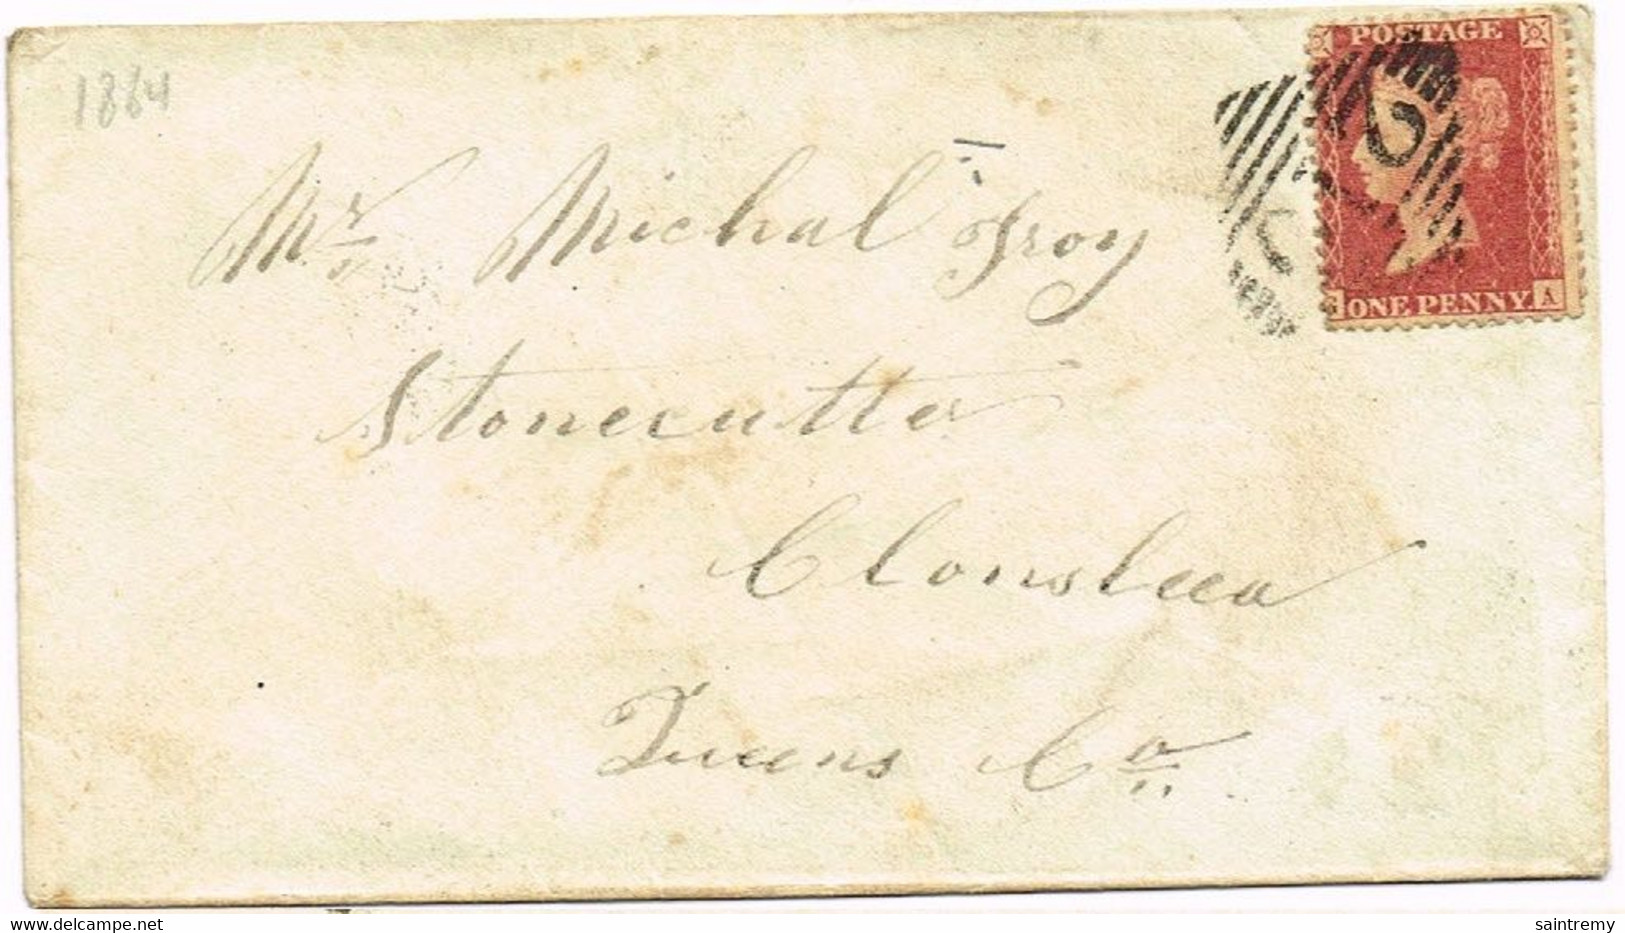 1864
POSTAGE
Mr Michal Troy
ONE PENNY
A
Stonecutter
Clonslea
Queens Co
saintremy